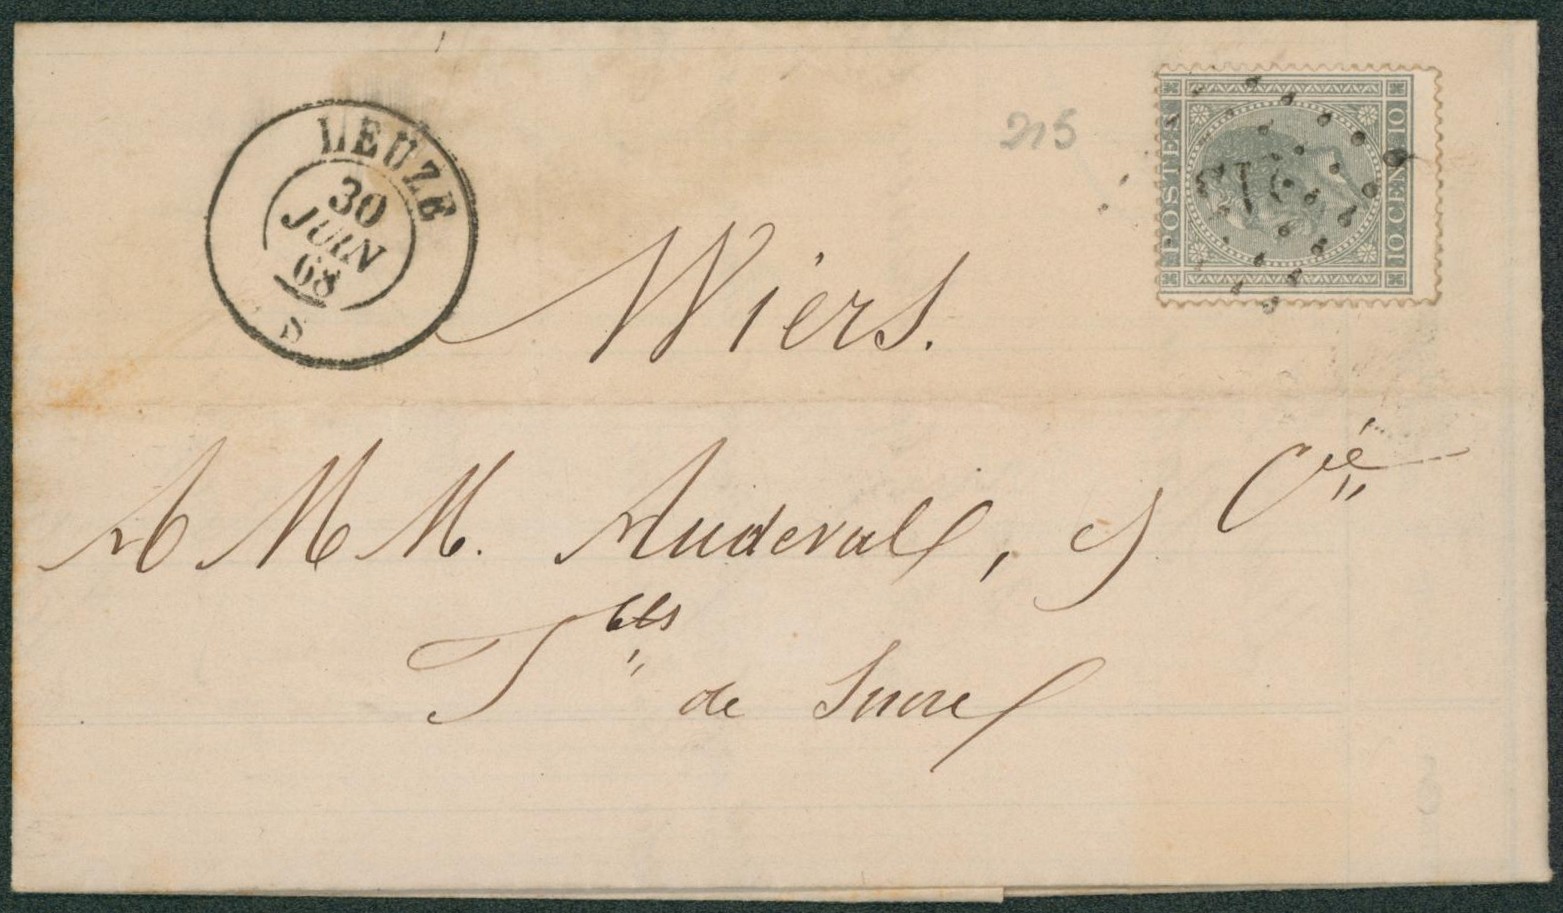 LEUZE
30
JUIN
68
8
215
POSTES
10 CENT 10
215
Wiers.
A MM. Auderval, & Cie
Fbts de Sucre